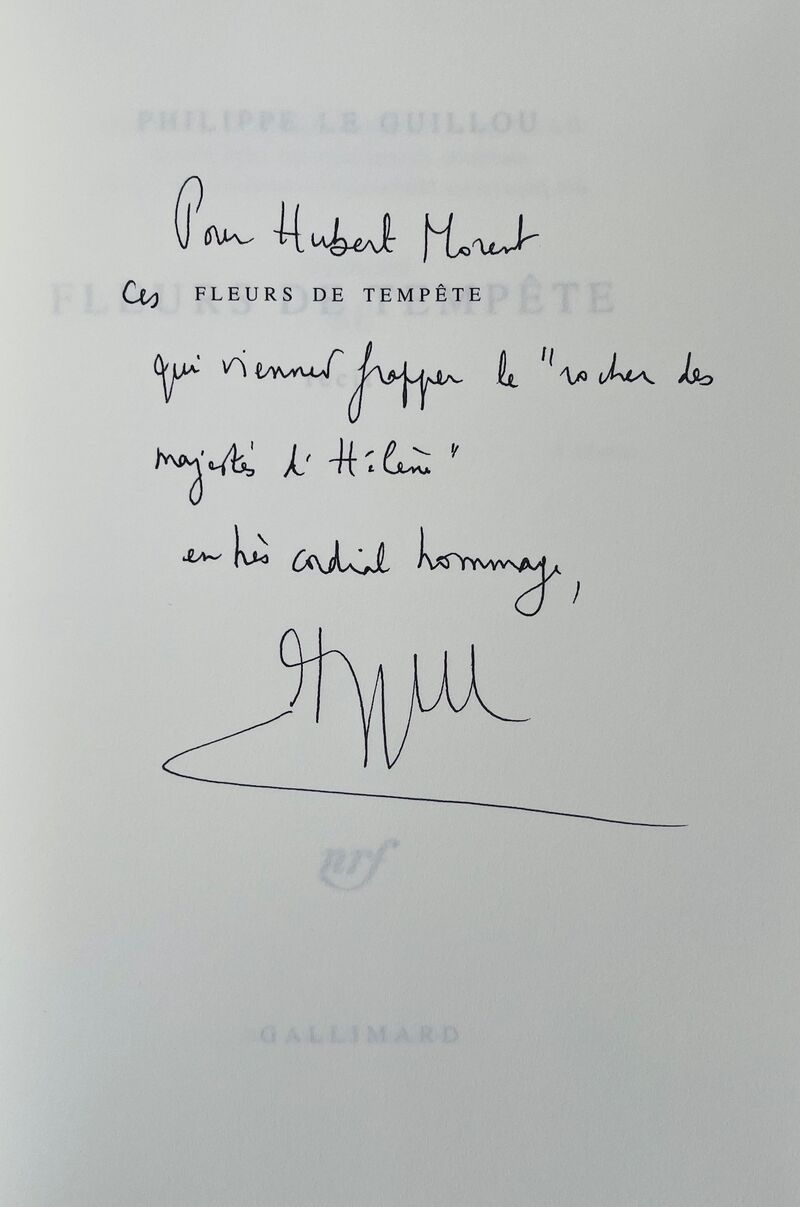 PHILIPPE LE GUILLOU
Pour Hubert Morent
Ces FLEURS DE TEMPÊTE
FLEURS DE TEMPÊTE
récit
qui viennent frapper le "rocher des
majestés d'Hélène"
en très cordial hommage,
nrf
GALLIMARD